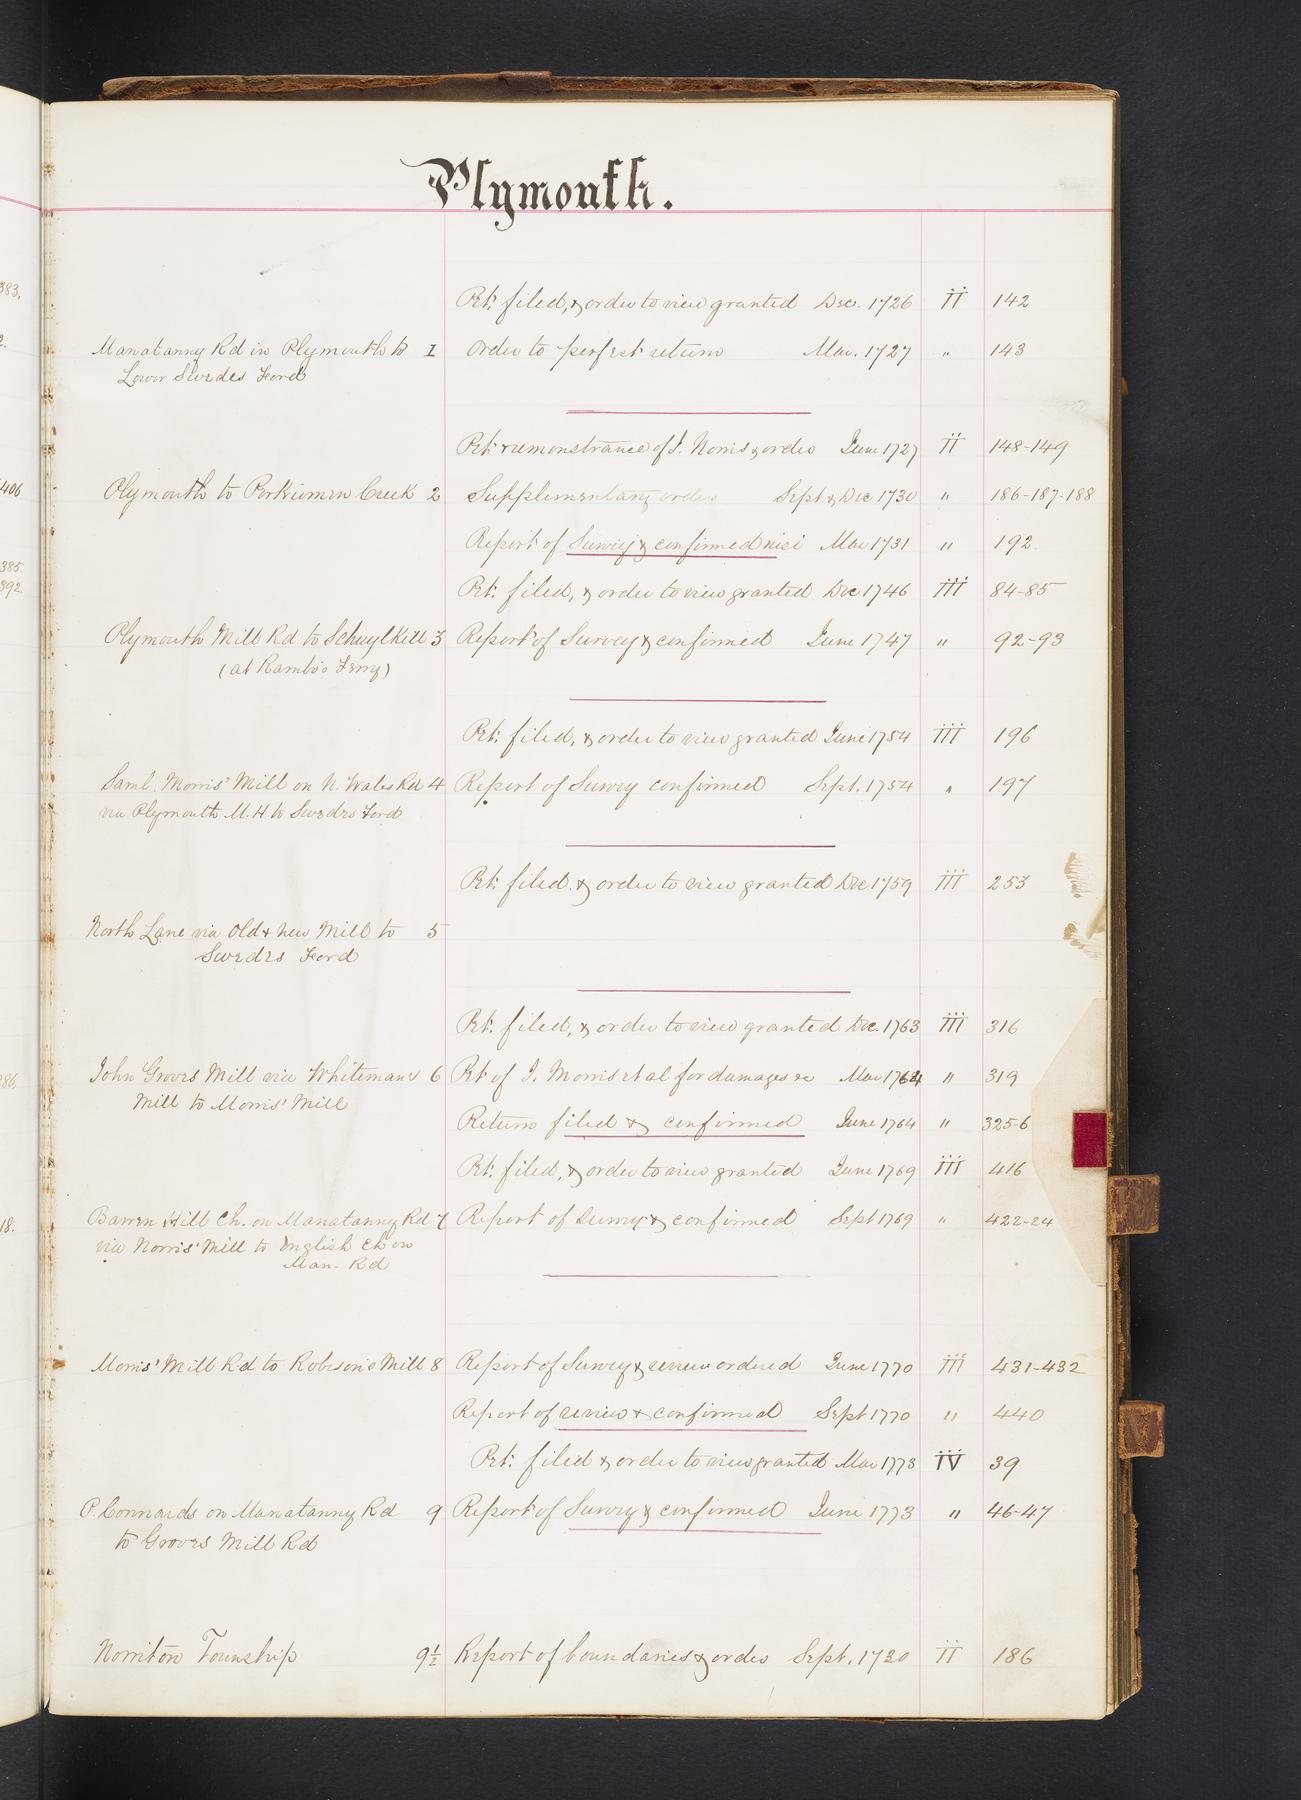 Plymouth.
Pet. filed, & order to view granted Dec. 1726 II 142
Manatanny Rd in Plymouth to 1 Order to perfect return Mar. 1727 " 143
Lower Swedes Ford
Pet. remonstrance of I. Norris & order June 1727 II 148-149
Plymouth to Perkiomen Creek 2 Supplementary order Sept & Dec 1730 " 186-187-188
Report of Survey & confirmed nisi Mar 1731 " 192
Pet. filed, & order to view granted Dec 1746 III 84-85
Plymouth Mill Rd to Schuylkill 3 Report of Survey & confirmed June 1747 " 92-93
(at Rambo's Ferry)
Pet. filed, & order to view granted June 1754 III 196
Saml. Morris' Mill on N. Wales Rd 4 Report of Survey confirmed Sept. 1754 " 197
via Plymouth M. H to Swedes Ford
Pet. filed. & order to view granted Dec 1759 III 253
North Lane via Old & new Mill to 5
Swedes Ford
Pet. filed, & order to view granted Dec. 1763 III 316
John Groves Mill via Whitemans 6 Pet of J. Morris et al for damages &c Mar 1764 " 319
Mill to Morris' Mill
Return filed & confirmed June 1764 " 325-6
Pet. filed, & order to view granted June 1769 III 416
Barren Hill Ch. on Manatanny Rd 7 Report of Survey & confirmed Sept 1769 " 422-24
via Norris' Mill to English Ch on
Man- Rd
Morris' Mill Rd to Robeson's Mill 8 Report of Survey & review ordered June 1770 III 431-432
Report of review & confirmed Sept 1770 " 440
Pet. filed & order to view granted Mar 1773 IV 39
P. Connards on Manatanny Rd 9 Report of Survey & confirmed June 1773 " 46-47
to Groves Mill Rd
Norriton Township 9½ Report of boundaries & order Sept. 1730 II 186
383.
2.
406
385.
392.
286.
18.